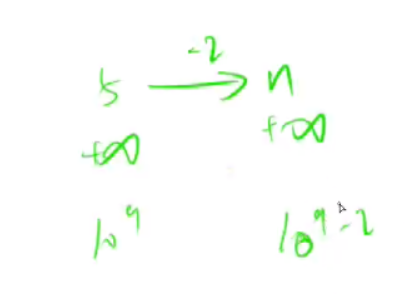 -2
5 → n
+∞ +∞
10⁹ 10⁹-2